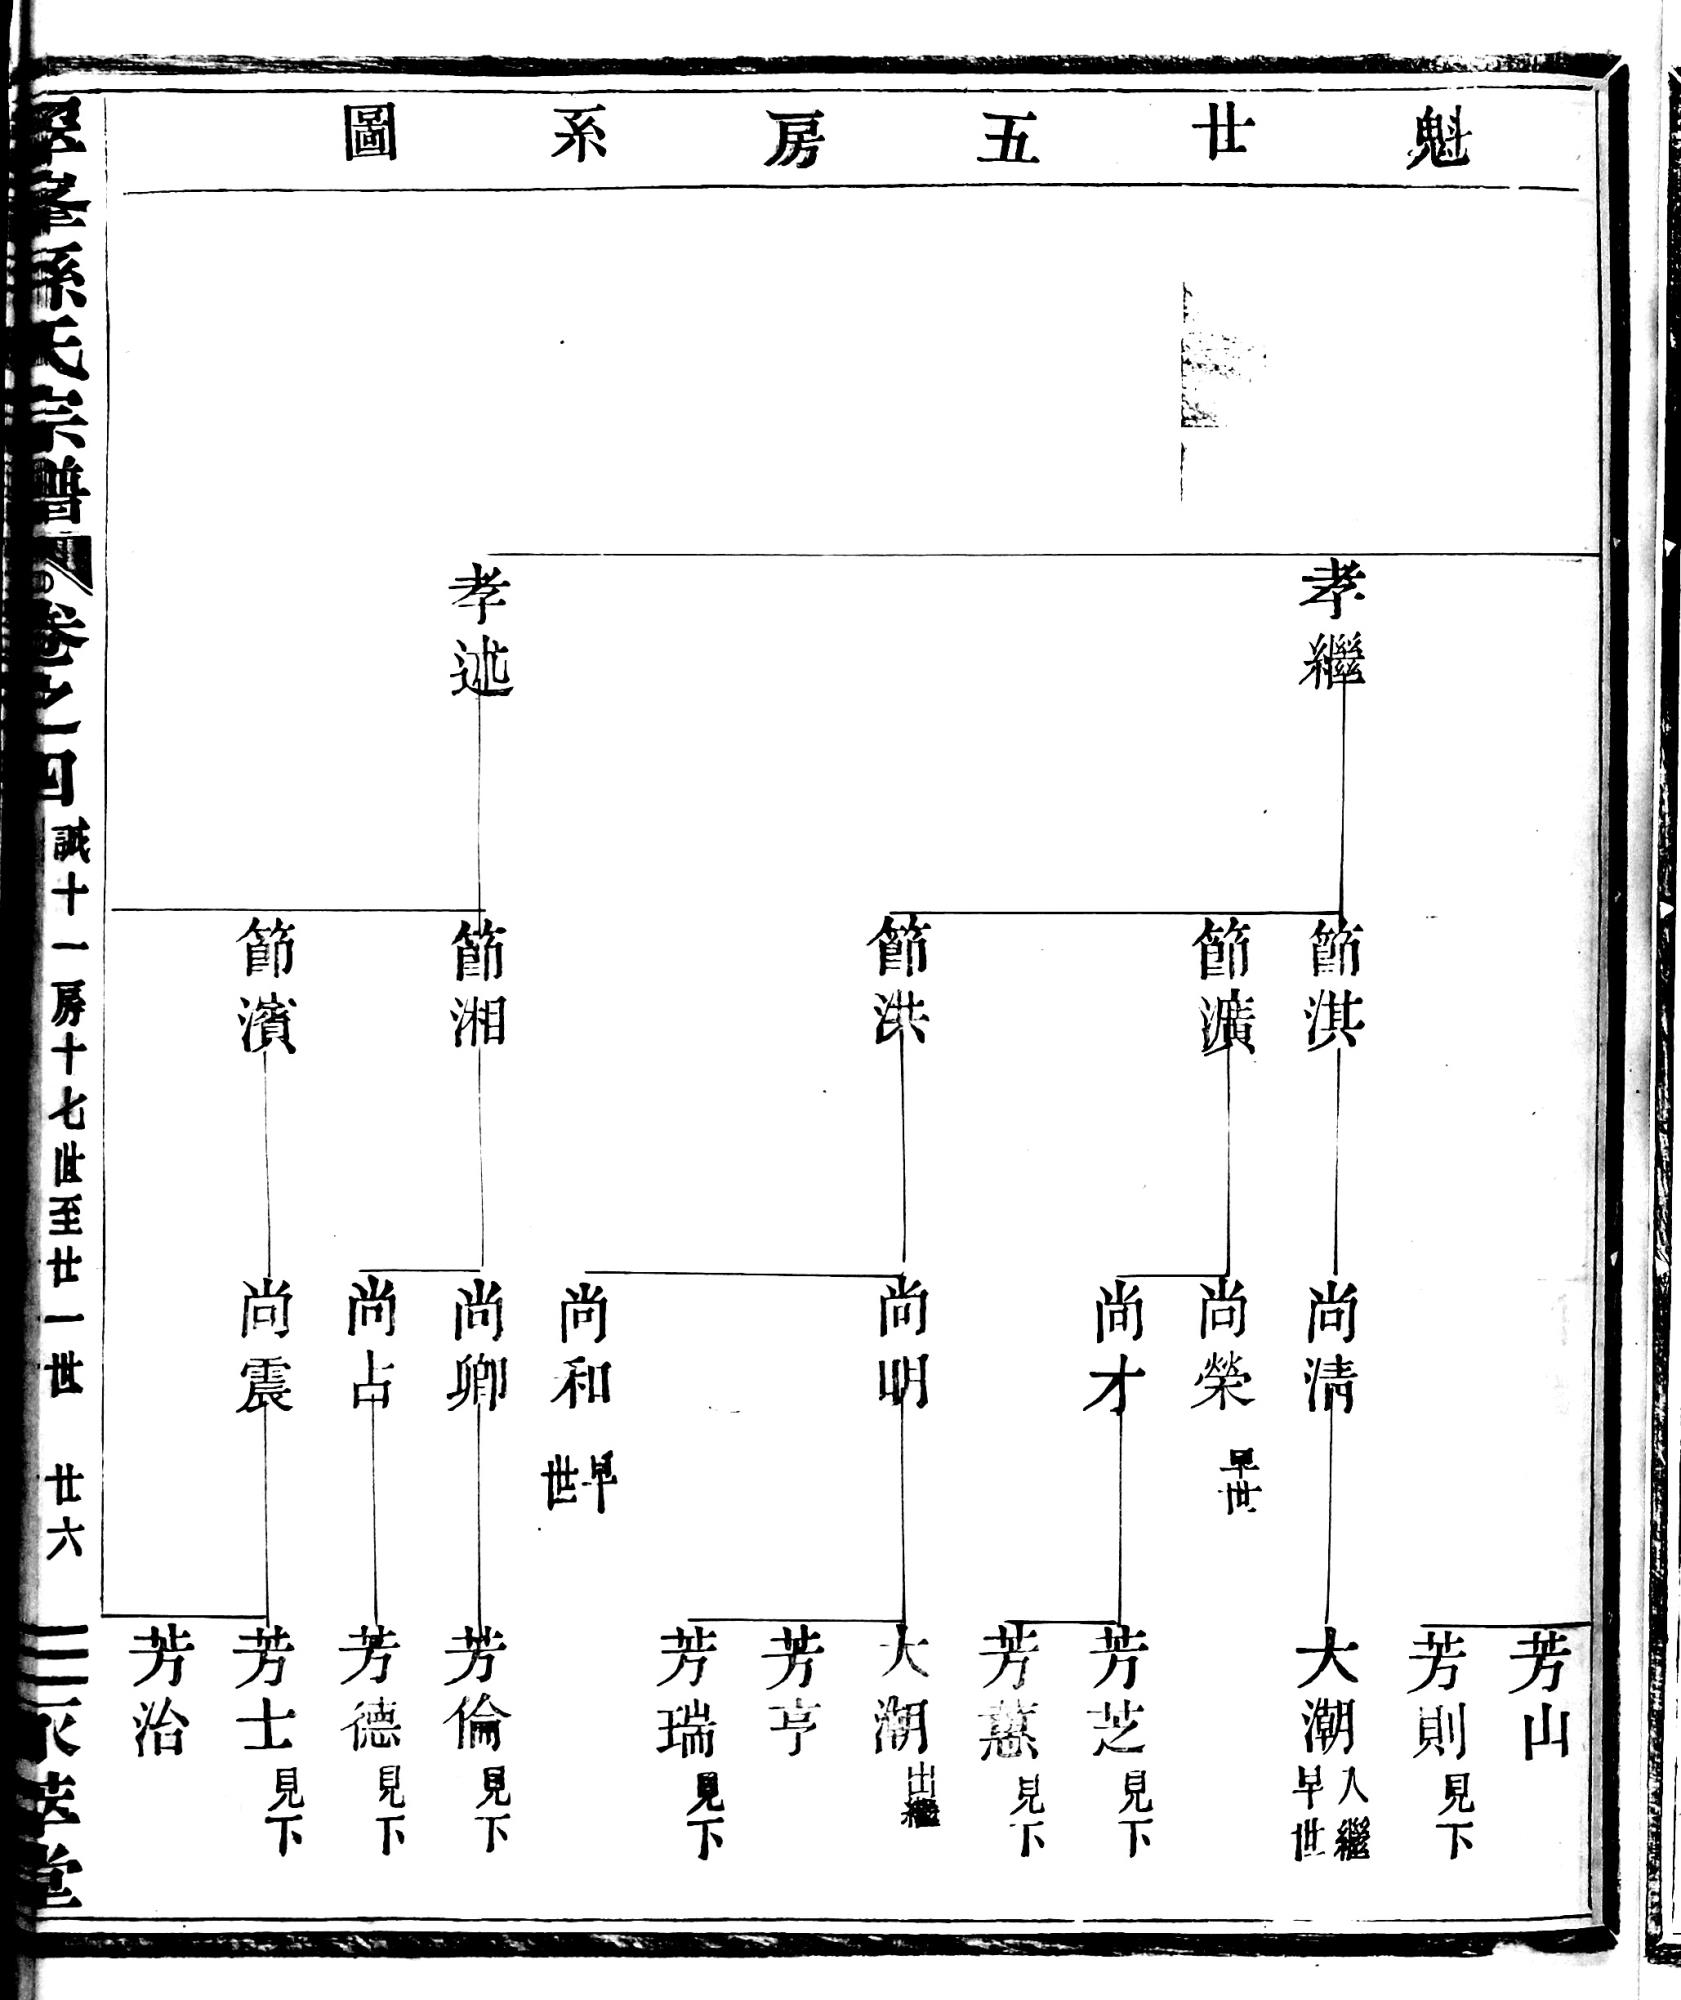 魁廿五房系圖
孝繼
孝述
節淇
節瀇
節洪
節湘
節濱
尚清
尚榮 早世
尚才
尚明
尚和 早世
尚卿
尚占
尚震
芳山
芳則 見下
大潮 入繼 早世
芳芝 見下
芳蕙 見下
大潮 出繼
芳亨
芳瑞 見下
芳倫 見下
芳德 見下
芳士 見下
芳治
峯孫氏宗譜 卷之四 誠十一房十七世至廿一世 廿六 萃堂